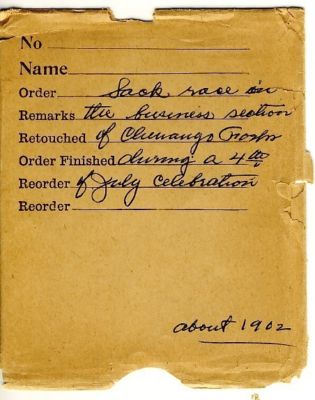 No
Name
Order Sack race in
Remarks the business section
Retouched of Chenango Forks
Order Finished during a 4th
Reorder of July celebration
Reorder
about 1902